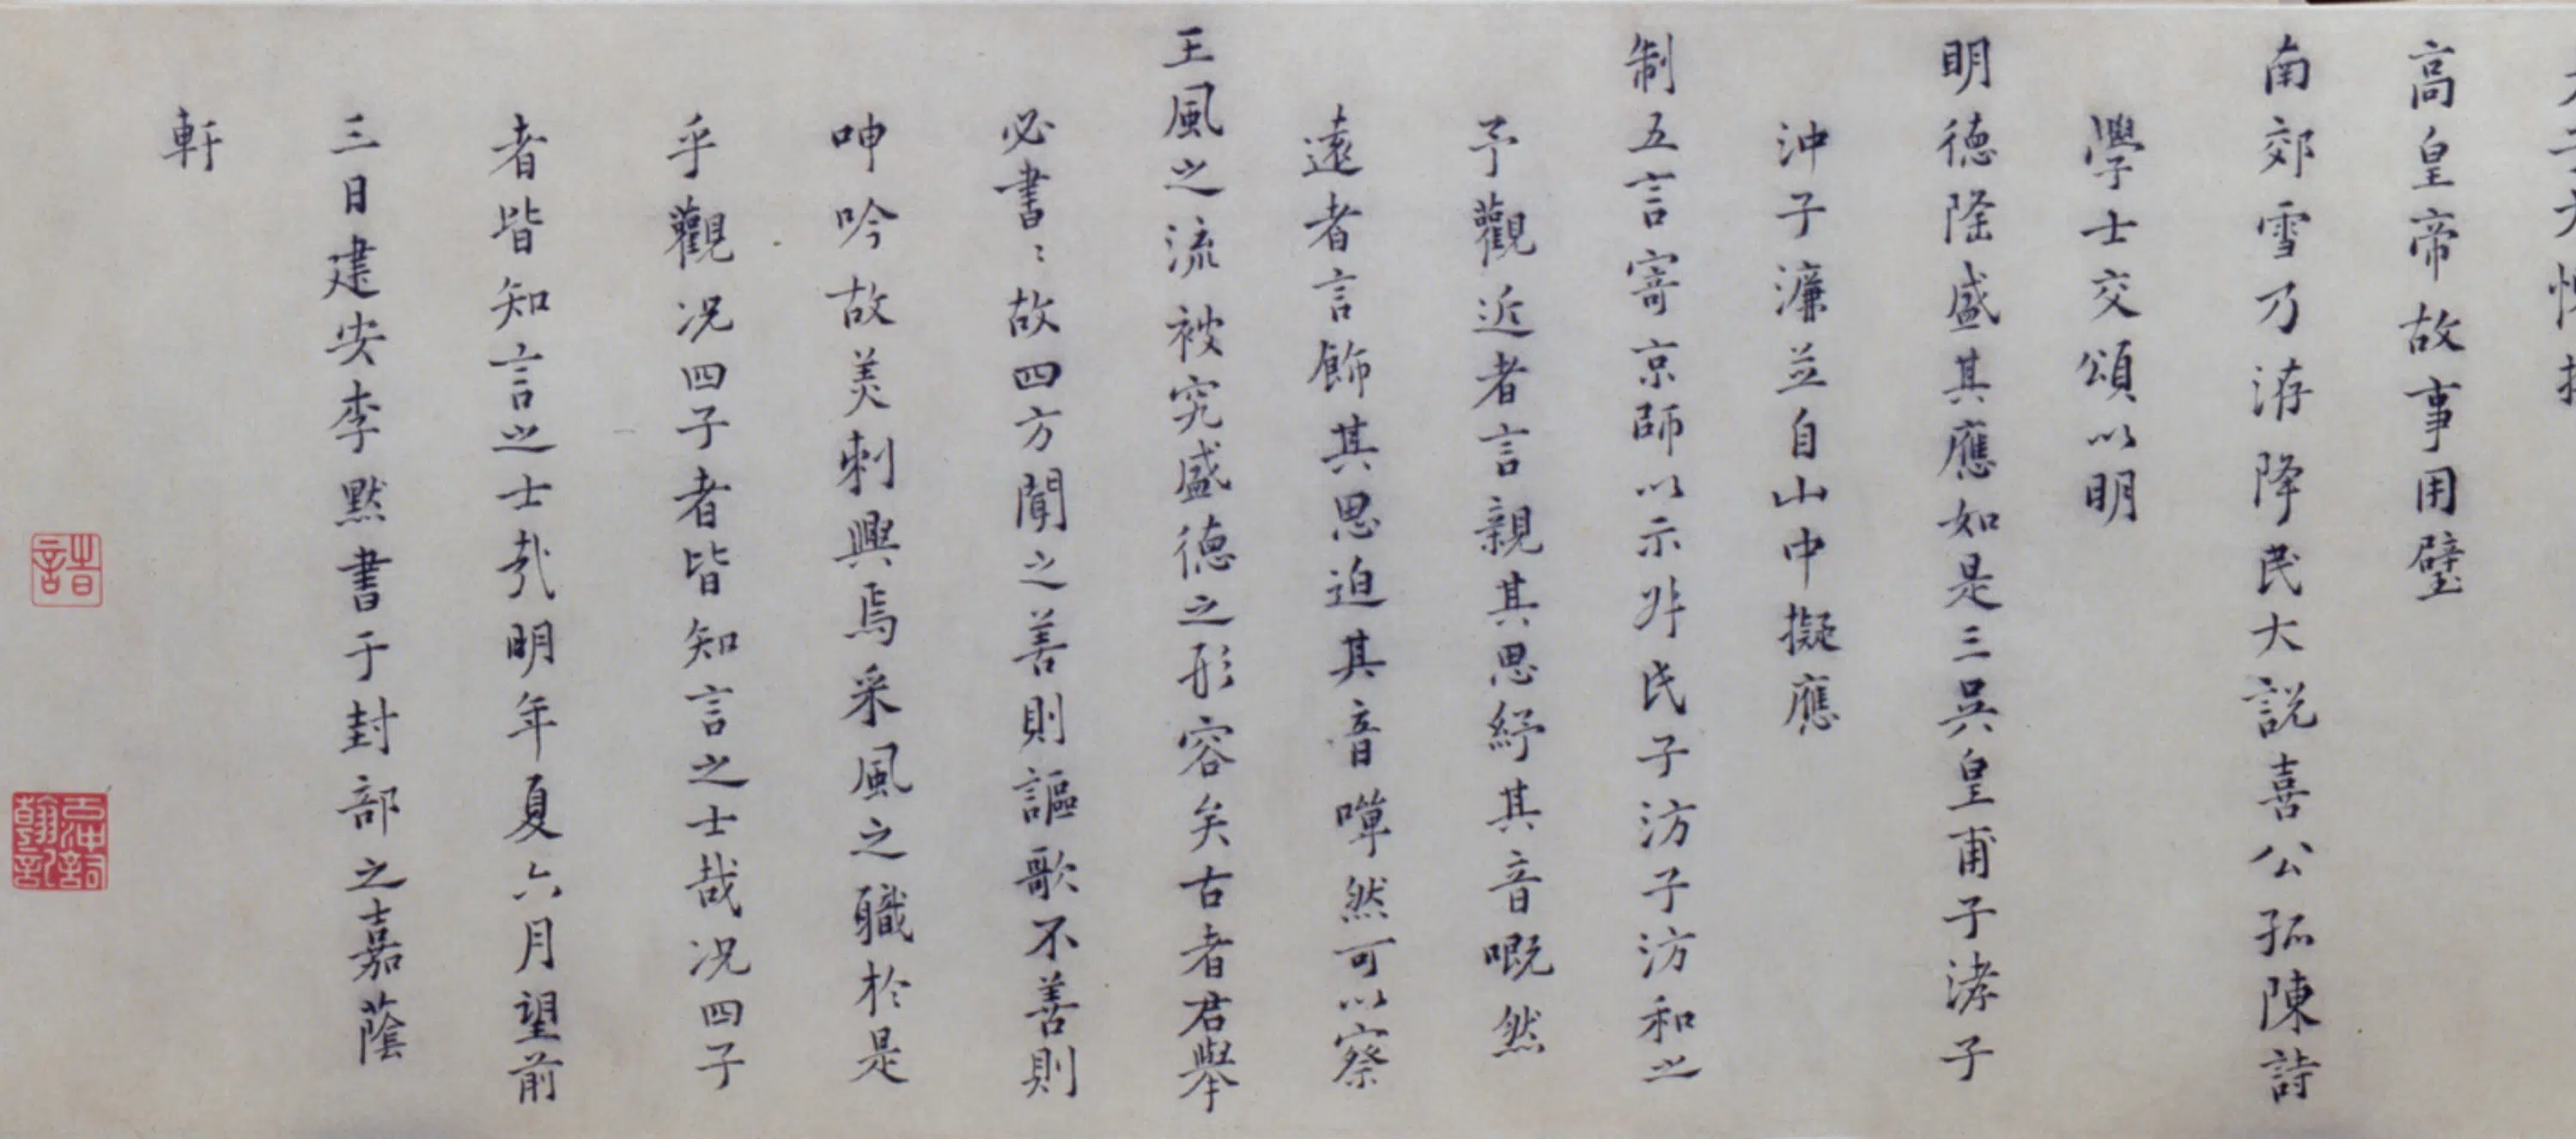 高皇帝故事用璧
南郊雪乃洊降民大説喜公孤陳詩
學士交頌以明
明德隆盛其應如是三吳皇甫子涍子
沖子濂並自山中擬應
制五言寄京師以示外氏子汸子汸和之
予觀近者言親其思紓其音嘅然
遠者言飾其思迫其音嘽然可以察
王風之流被究盛德之形容矣古者君舉
必書〻故四方聞之善則謳歌不善則
呻吟故美刺興焉采風之職於是
乎觀况四子者皆知言之士哉况四子
者皆知言之士哉明年夏六月望前
三日建安李默書于封部之嘉蔭
軒